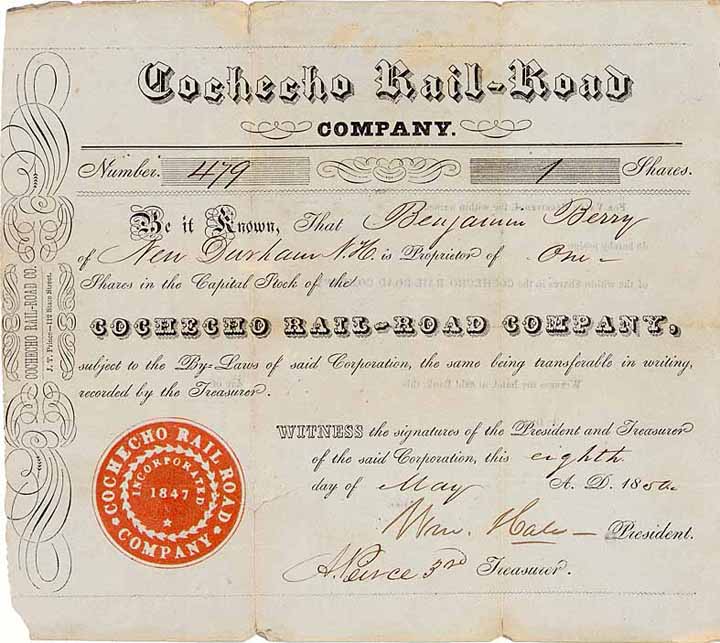 Cochecho Rail-Road
COMPANY.
Number. 479 1 Shares.
Be it Known, That Benjamin Berry
of New Durham N.H. is Proprietor of One
Shares in the Capital Stock of the
COCHECHO RAIL-ROAD COMPANY,
subject to the By-Laws of said Corporation, the same being transferable in writing,
recorded by the Treasurer.
WITNESS the signatures of the President and Treasurer
of the said Corporation, this eighth
day of May A. D. 185
Wm. Hale President.
A. Peirce 3rd Treasurer.
COCHECHO RAIL ROAD
COMPANY
INCORPORATED
1847
COCHECHO RAIL-ROAD CO.